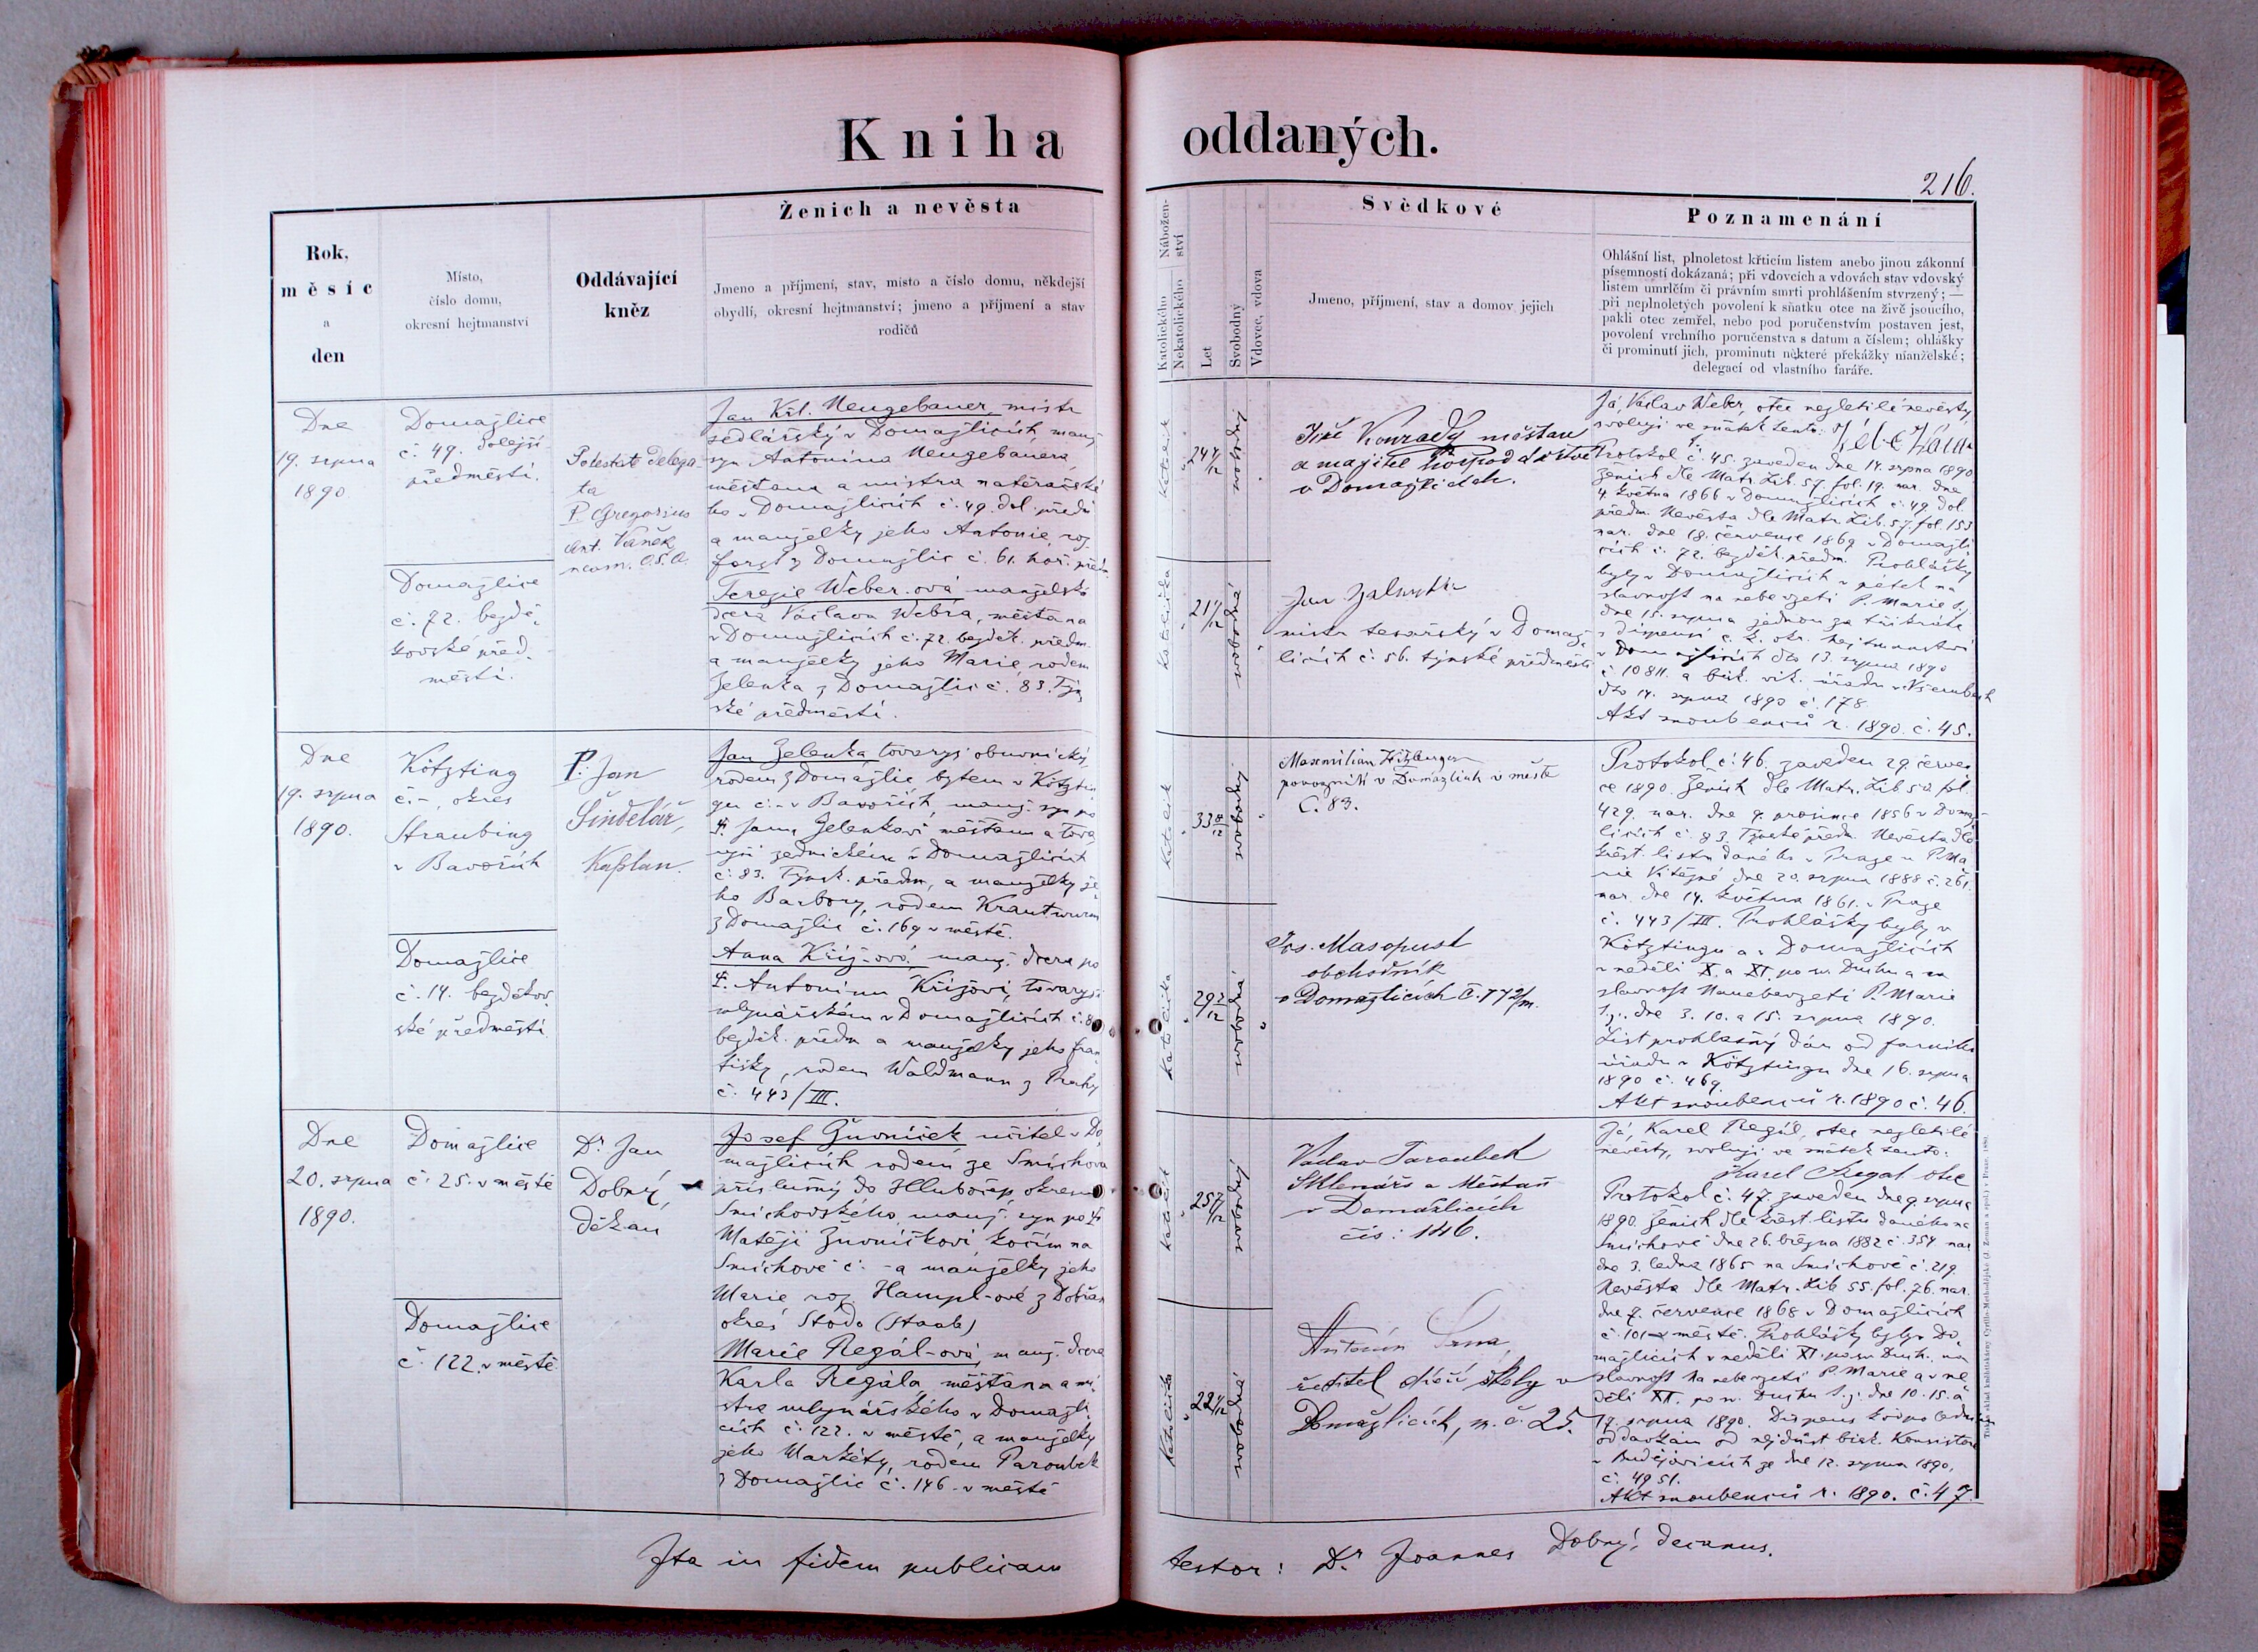 Kniha oddaných.
216.
Rok,
měsíc
a
den
Místo,
číslo domu,
okresní hejtmanství
Oddávající
kněz
Ženich a nevěsta
Jmeno a příjmení, stav, místo a číslo domu, někdejší
obydlí, okresní hejtmanství; jmeno a příjmení a stav
rodičů
Nábožen-
ství
Katolického
Nekatolického
Let
Svobodný
Vdovec, vdova
Svědkové
Jmeno, příjmení, stav a domov jejich
Poznamenání
Ohlášní list, plnoletost křticím listem anebo jinou zákonní
písemností dokázaná; při vdovcích a vdovách stav vdovský
listem umrlčím či právním smrti prohlášením stvrzený; —
při neplnoletých povolení k sňatku otce na živě jsoucího,
pakli otec zemřel, nebo pod poručenstvím postaven jest,
povolení vrchního poručenstva s datum a číslem; ohlášky
či prominutí jich, prominutí některé překážky manželské;
delegací od vlastního faráře.
Dne
19. srpna
1890
Domažlice
č. 49. dolejší
předměstí.
Domažlice
č. 72. bezdě-
kovské před-
městí.
Potestate delega-
ta
P. Gregorius
Ant. Vaněk
O.S.A.
Jan Křt. Neugebauer, mistr
sedlářský v Domažlicích, manž.
syn Antonína Neugebauera,
měšťana a mistra
ho v Domažlicích č. 49. dol. předm.
a manželky jeho Antonie, roz.
z Domažlic č. 61. hoř. předm.
Terezie Weber-ová manželská
dcera Václava Webra, měšťana
v Domažlicích č. 72. bezděk. předm.
a manželky jeho Marie, rodem
Zelenka z Domažlic č. 83. Týn-
ské předměstí.
katolík
24 4/12
svobodný
katolička
21 1/12
svobodná
Jiří Konrady měšťan
a majitel hospodářství
v Domažlicích.
Jan
mistr tesařský v Domaž-
licích č. 56. týnské předměstí
Já, Václav Weber, otec nezletilé nevěsty,
svoluji ve sňatek tento:
Protokol č. 45. zaveden dne 14. srpna 1890
Ženich dle Matr. Lib. 57. fol. 19. nar. dne
4. května 1866 v Domažlicích č. 49. dol.
předm. Nevěsta dle Matr. Lib. 57. fol. 153
nar. dne 18. července 1869 v Domažli-
cích č. 72. bezděk. předm. Prohlášky
byly v Domažlicích v pátek na
slavnost na nebevzetí P. Marie t.j.
dne 15. srpna jednou za třikráte
s dispensí c. k. okr. hejtmanství
v Domažlicích dto 13. srpna 1890
č. 10811. a bisk. vik. úřadu v Všerubech
dto 14. srpna 1890 č. 178
Akt snoubenců r. 1890. č. 45.
Dne
19. srpna
1890.
Kötzting
č. –, okres
Straubing
v Bavořích
Domažlice
č. 14. bezděkov-
ské předměstí.
P. Jan
Šindelář,
Kaplan.
Jan Zelenka, tovaryš obuvnický,
rodem z Domažlic, bytem v Kötztin-
gu č. – v Bavořích, manž. syn po
† Janu Zelenkovi měšťanu a tova-
ryši zednickém v Domažlicích
č. 83. Týnsk. předm., a manželky je-
ho Barbory, rodem Krautwurm
z Domažlic č. 169 v městě.
Anna Kříž-ová, manž. dcera po
† Antonínu Křížovi, tovaryši
mlynářském v Domažlicích č. 8
bezděk. předm. a manželky jeho Fran-
tišky, rodem Waldmann z Prahy
č. 443/III.
katolík
33 8/12
svobodný
katolička
29 3/12
svobodná
Maxmilian
povozník v Domažlicích v městě
Č. 83.
Jos. Masopust
obchodník
v Domažlicích č. 172/m.
Protokol č. 46. zaveden 29. červen-
ce 1890. Ženich dle Matr. Lib 50. fol.
429. nar. dne 9. prosince 1856 v Domaž-
licích č. 83. Týnské předm. Nevěsta dle
křest. listu daného v Praze u P. Ma-
rie Vítězné dne 20. srpna 1888 č. 261.
nar. dne 14. května 1861. v Praze
č. 443/III. Prohlášky byly v
Kötztingu a v Domažlicích
v neděli X. a XI. po sv. Duchu a na
slavnost Nanebevzetí P. Marie
t.j. dne 3. 10. a 15. srpna 1890.
List prohlášný dán od farního
úřadu v Kötztingu dne 16. srpna
1890 č. 469.
Akt snoubenců r. 1890 č. 46.
Dne
20. srpna
1890.
Domažlice
č. 25. v městě
Domažlice
č. 122. v městě
Dr. Jan
Dobrý,
děkan
Josef Živníček učitel v Do-
mažlicích rodem ze Smíchova
příslušný do Hlubočep, okresu
Smíchovského, manž. syn po †
Matěji Živníčkovi, kočím na
Smíchově č. – a manželky jeho
Marie roz. Hampl-ové z Dobřan
okres Stoda (Staab)
Marie Regál-ová, manž. dcera
Karla Regála, měšťana a mi-
stra mlynářského v Domažli-
cích č. 122. v městě, a manželky
jeho Markéty, rodem Paroubek
z Domažlic č. 146 v městě
katolík
25 7/12
svobodný
katolička
22 1/12
svobodná
Václav Paroubek
Sklenář a Měšťan
v Domažlicích
čís: 146.
Antonín
ředitel dívčí školy v
Domažlicích, n. č. 25.
Já, Karel Regál, otec nezletilé
nevěsty, svoluji ve sňatek tento:
Karel Regal otec
Protokol č. 47. zaveden dne 9. srpna
1890. Ženich dle křest. listu daného na
Smíchově dne 26. března 1882 č. 354 nar.
dne 3. ledna 1865 na Smíchově č. 219.
Nevěsta dle Matr. Lib 55. fol. 76. nar.
dne 7. července 1868 v Domažlicích
č. 101 v městě. Prohlášky byly v Do-
mažlicích v neděli XI. po sv. Duchu, na
slavnost Na nebevzetí P. Marie a v ne-
děli XII. po sv. Duchu t.j. dne 10. 15. a
17. srpna 1890. Dispens
oddavkám od nejdůst. bisk. Konsistoře
v Budějovicích ze dne 12. srpna 1890,
č. 4951.
Akt snoubenců r. 1890. č. 47.
Ita in fidem publicam testor: Dr. Joannes Dobrý, decanus.